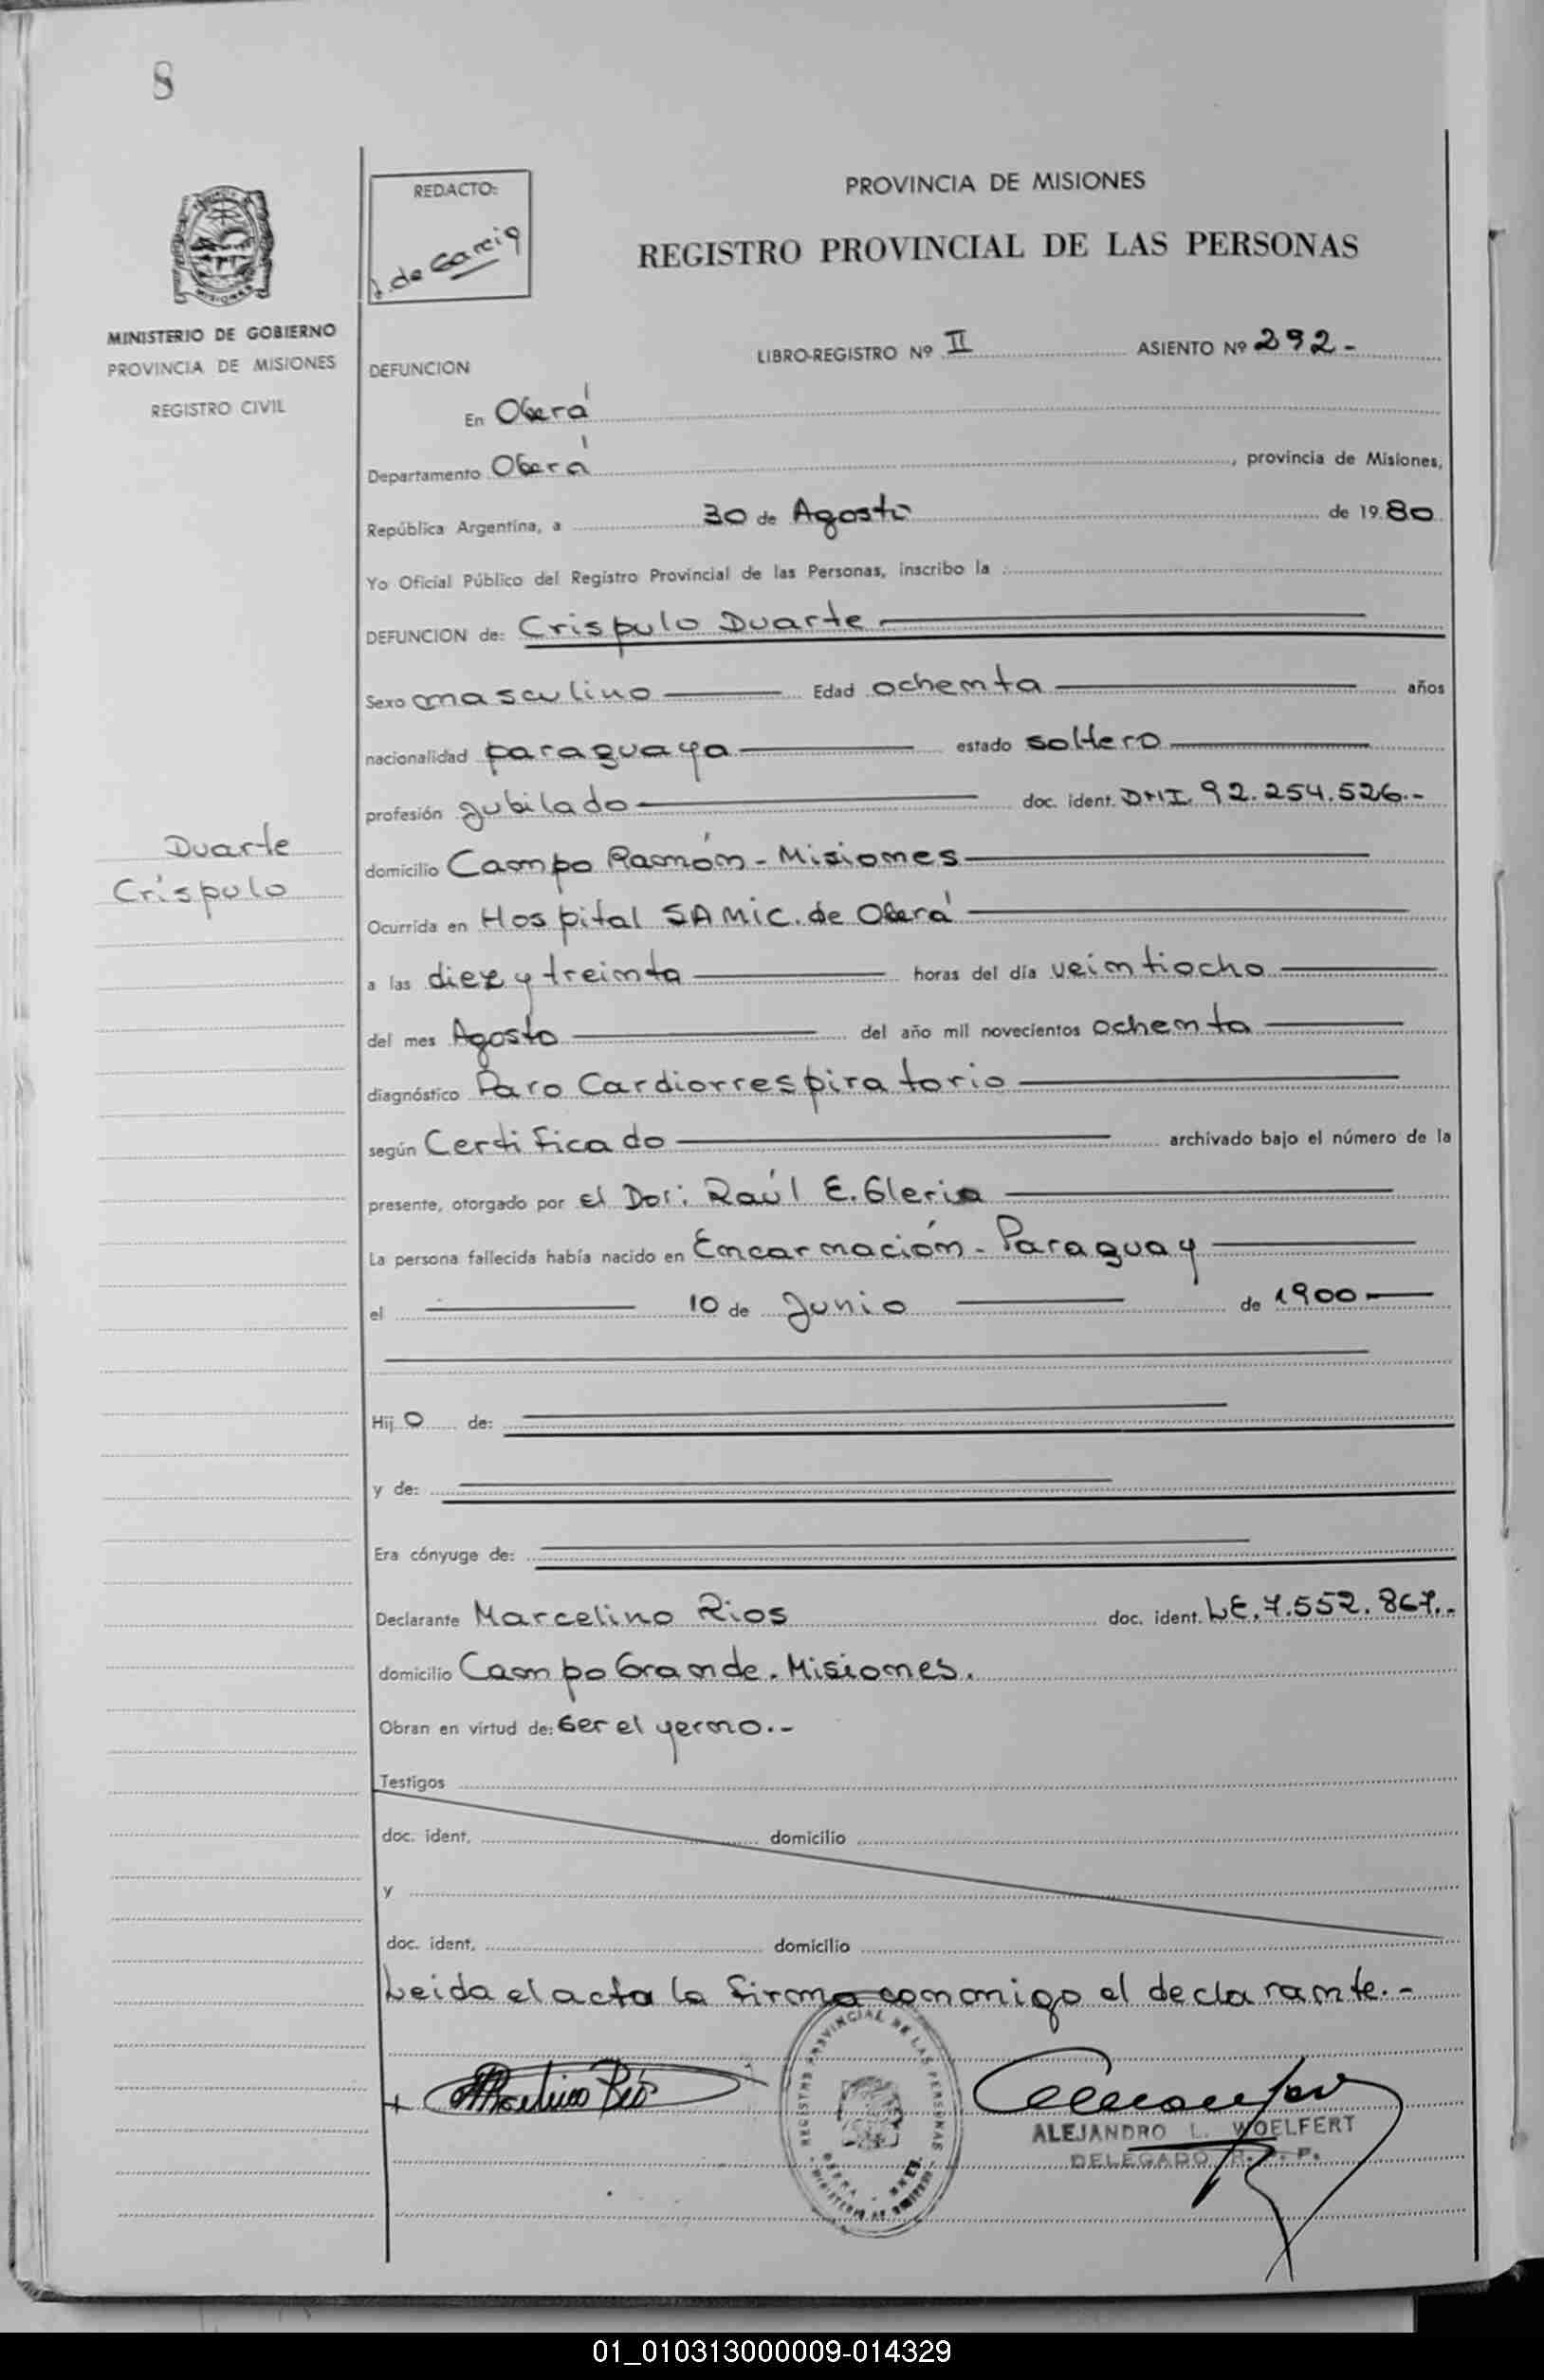 8
REDACTO:
de Garcia
PROVINCIA DE MISIONES
REGISTRO PROVINCIAL DE LAS PERSONAS
MISIONES
MINISTERIO DE GOBIERNO
PROVINCIA DE MISIONES
REGISTRO CIVIL
LIBRO-REGISTRO Nº II ASIENTO Nº 292-
DEFUNCION
En Oberá
Departamento Oberá, provincia de Misiones,
República Argentina, a 30 de Agosto de 1980
Yo Oficial Público del Registro Provincial de las Personas, inscribo la
DEFUNCION de: Crispulo Duarte
Sexo masculino Edad ochenta años
nacionalidad paraguaya estado soltero
profesión Jubilado doc. ident. DNI. 92.254.526.-
Duarte
Crispulo
domicilio Campo Ramón - Misiones
Ocurrida en Hospital SAMIC. de Oberá
a las diez y treinta horas del día veintiocho
del mes Agosto del año mil novecientos ochenta
diagnóstico Paro Cardiorrespiratorio
según Certificado archivado bajo el número de la
presente, otorgado por el Dor: Raúl E. Gleria
La persona fallecida había nacido en Encarnación - Paraguay
el 10 de Junio de 1900
Hijo de:
y de:
Era cónyuge de:
Declarante Marcelino Rios doc. ident. LE. 7.552.867.-
domicilio Campo Grande. Misiones.
Obran en virtud de: Ser el yerno.-
Testigos
doc. ident. domicilio
y
doc. ident. domicilio
Leida el acta la firma conmigo el declarante.-
REGISTRO PROVINCIAL DE LAS PERSONAS
ALEJANDRO L. WOELFERT
DELEGADO R. P. P.
01_010313000009-014329